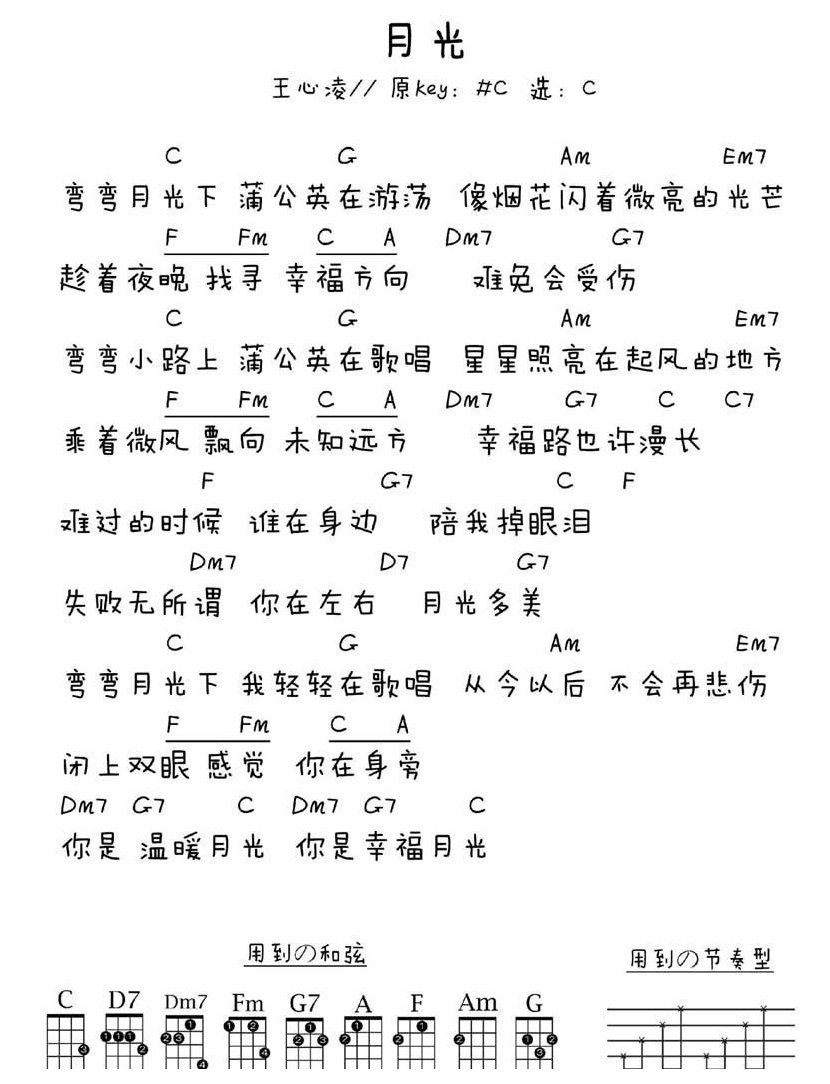 月光
王心凌// 原key: #C 选: C
C G Am Em7
弯弯月光下 蒲公英在游荡 像烟花闪着微亮的光芒
F Fm C A Dm7 G7
趁着夜晚 找寻 幸福方向 难免会受伤
C G Am Em7
弯弯小路上 蒲公英在歌唱 星星照亮在起风的地方
F Fm C A Dm7 G7 C C7
乘着微风 飘向 未知远方 幸福路也许漫长
F G7 C F
难过的时候 谁在身边 陪我掉眼泪
Dm7 D7 G7
失败无所谓 你在左右 月光多美
C G Am Em7
弯弯月光下 我轻轻在歌唱 从今以后 不会再悲伤
F Fm C A
闭上双眼 感觉 你在身旁
Dm7 G7 C Dm7 G7 C
你是 温暖月光 你是幸福月光
用到の和弦
用到の节奏型
C D7 Dm7 Fm G7 A F Am G
3 1 1 1 2 1 2 3 4 1 2 4 1 2 3 1 2 1 2 2 1 2 3